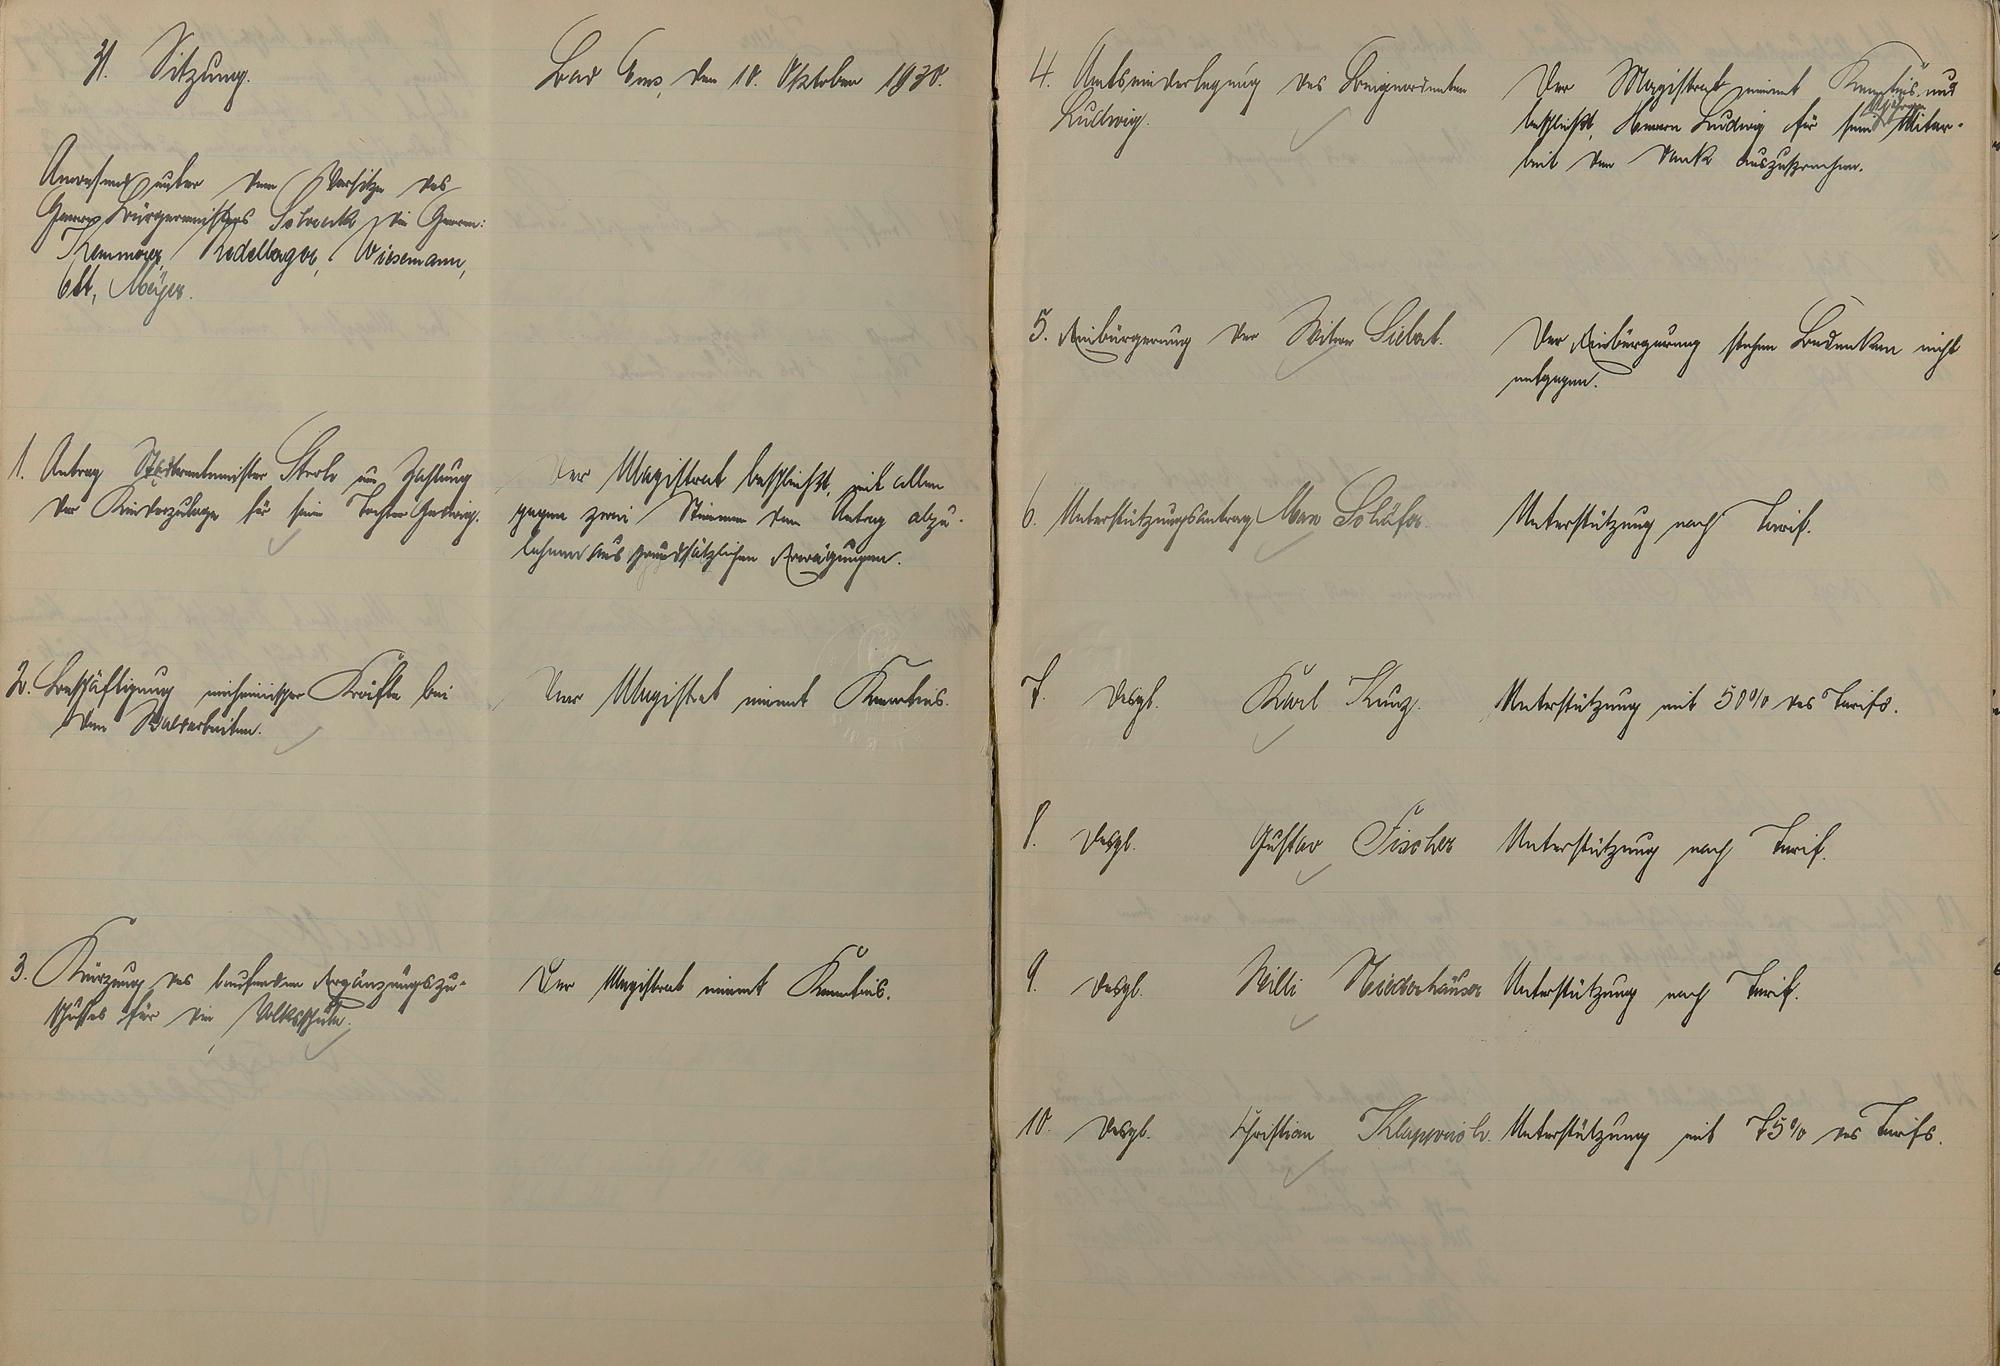 31. Sitzung.
Bad Ems, den 10. Oktober 1930.
Anwesend unter dem Vorsitze des
Herrn Bürgermeisters Schrank die Herren:
Kemmerer, Redelberger, Wiesemann,
Ott, Meyer.
1. Antrag Stadtrentmeister Sterlo um Zahlung
der Kinderzulage für seine Tochter Hedwig.
Der Magistrat beschließt, mit allen
gegen zwei Stimmen den Antrag abzu-
lehnen aus grundsätzlichen Erwägungen.
2. Beschäftigung einheimischer Kräfte bei
den Waldarbeiten.
Der Magistrat nimmt Kenntnis.
3. Kürzung des laufenden Ergänzungszu-
schusses für die Volksschule.
Der Magistrat nimmt Kenntnis.
4. Amtsniederlegung des Beigeordneten
Ludwig.
Der Magistrat nimmt Kenntnis und
beschließt, Herrn Ludwig für seine Mitar-
beit den Dank auszusprechen.
5. Einbürgerung der Witwe Siebat.
Der Einbürgerung stehen Bedenken nicht
entgegen.
6. Unterstützungsantrag Max Schäfer.
Unterstützung nach Tarif.
7. Desgl. Karl Kunz.
Unterstützung mit 50% des Tarifs.
8. Desgl. Gustav Fischer
Unterstützung nach Tarif.
9. Desgl. Willi Niederhäuser
Unterstützung nach Tarif.
10. Desgl. Christian Klapproich.
Unterstützung mit 75% des Tarifs.